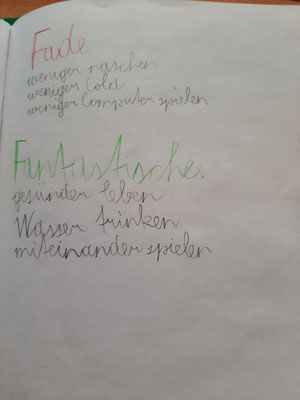 Fade
weniger naschen
weniger Cola
weniger Computer spielen
Fantastische.
gesünder leben
Wasser trinken
miteinander spielen